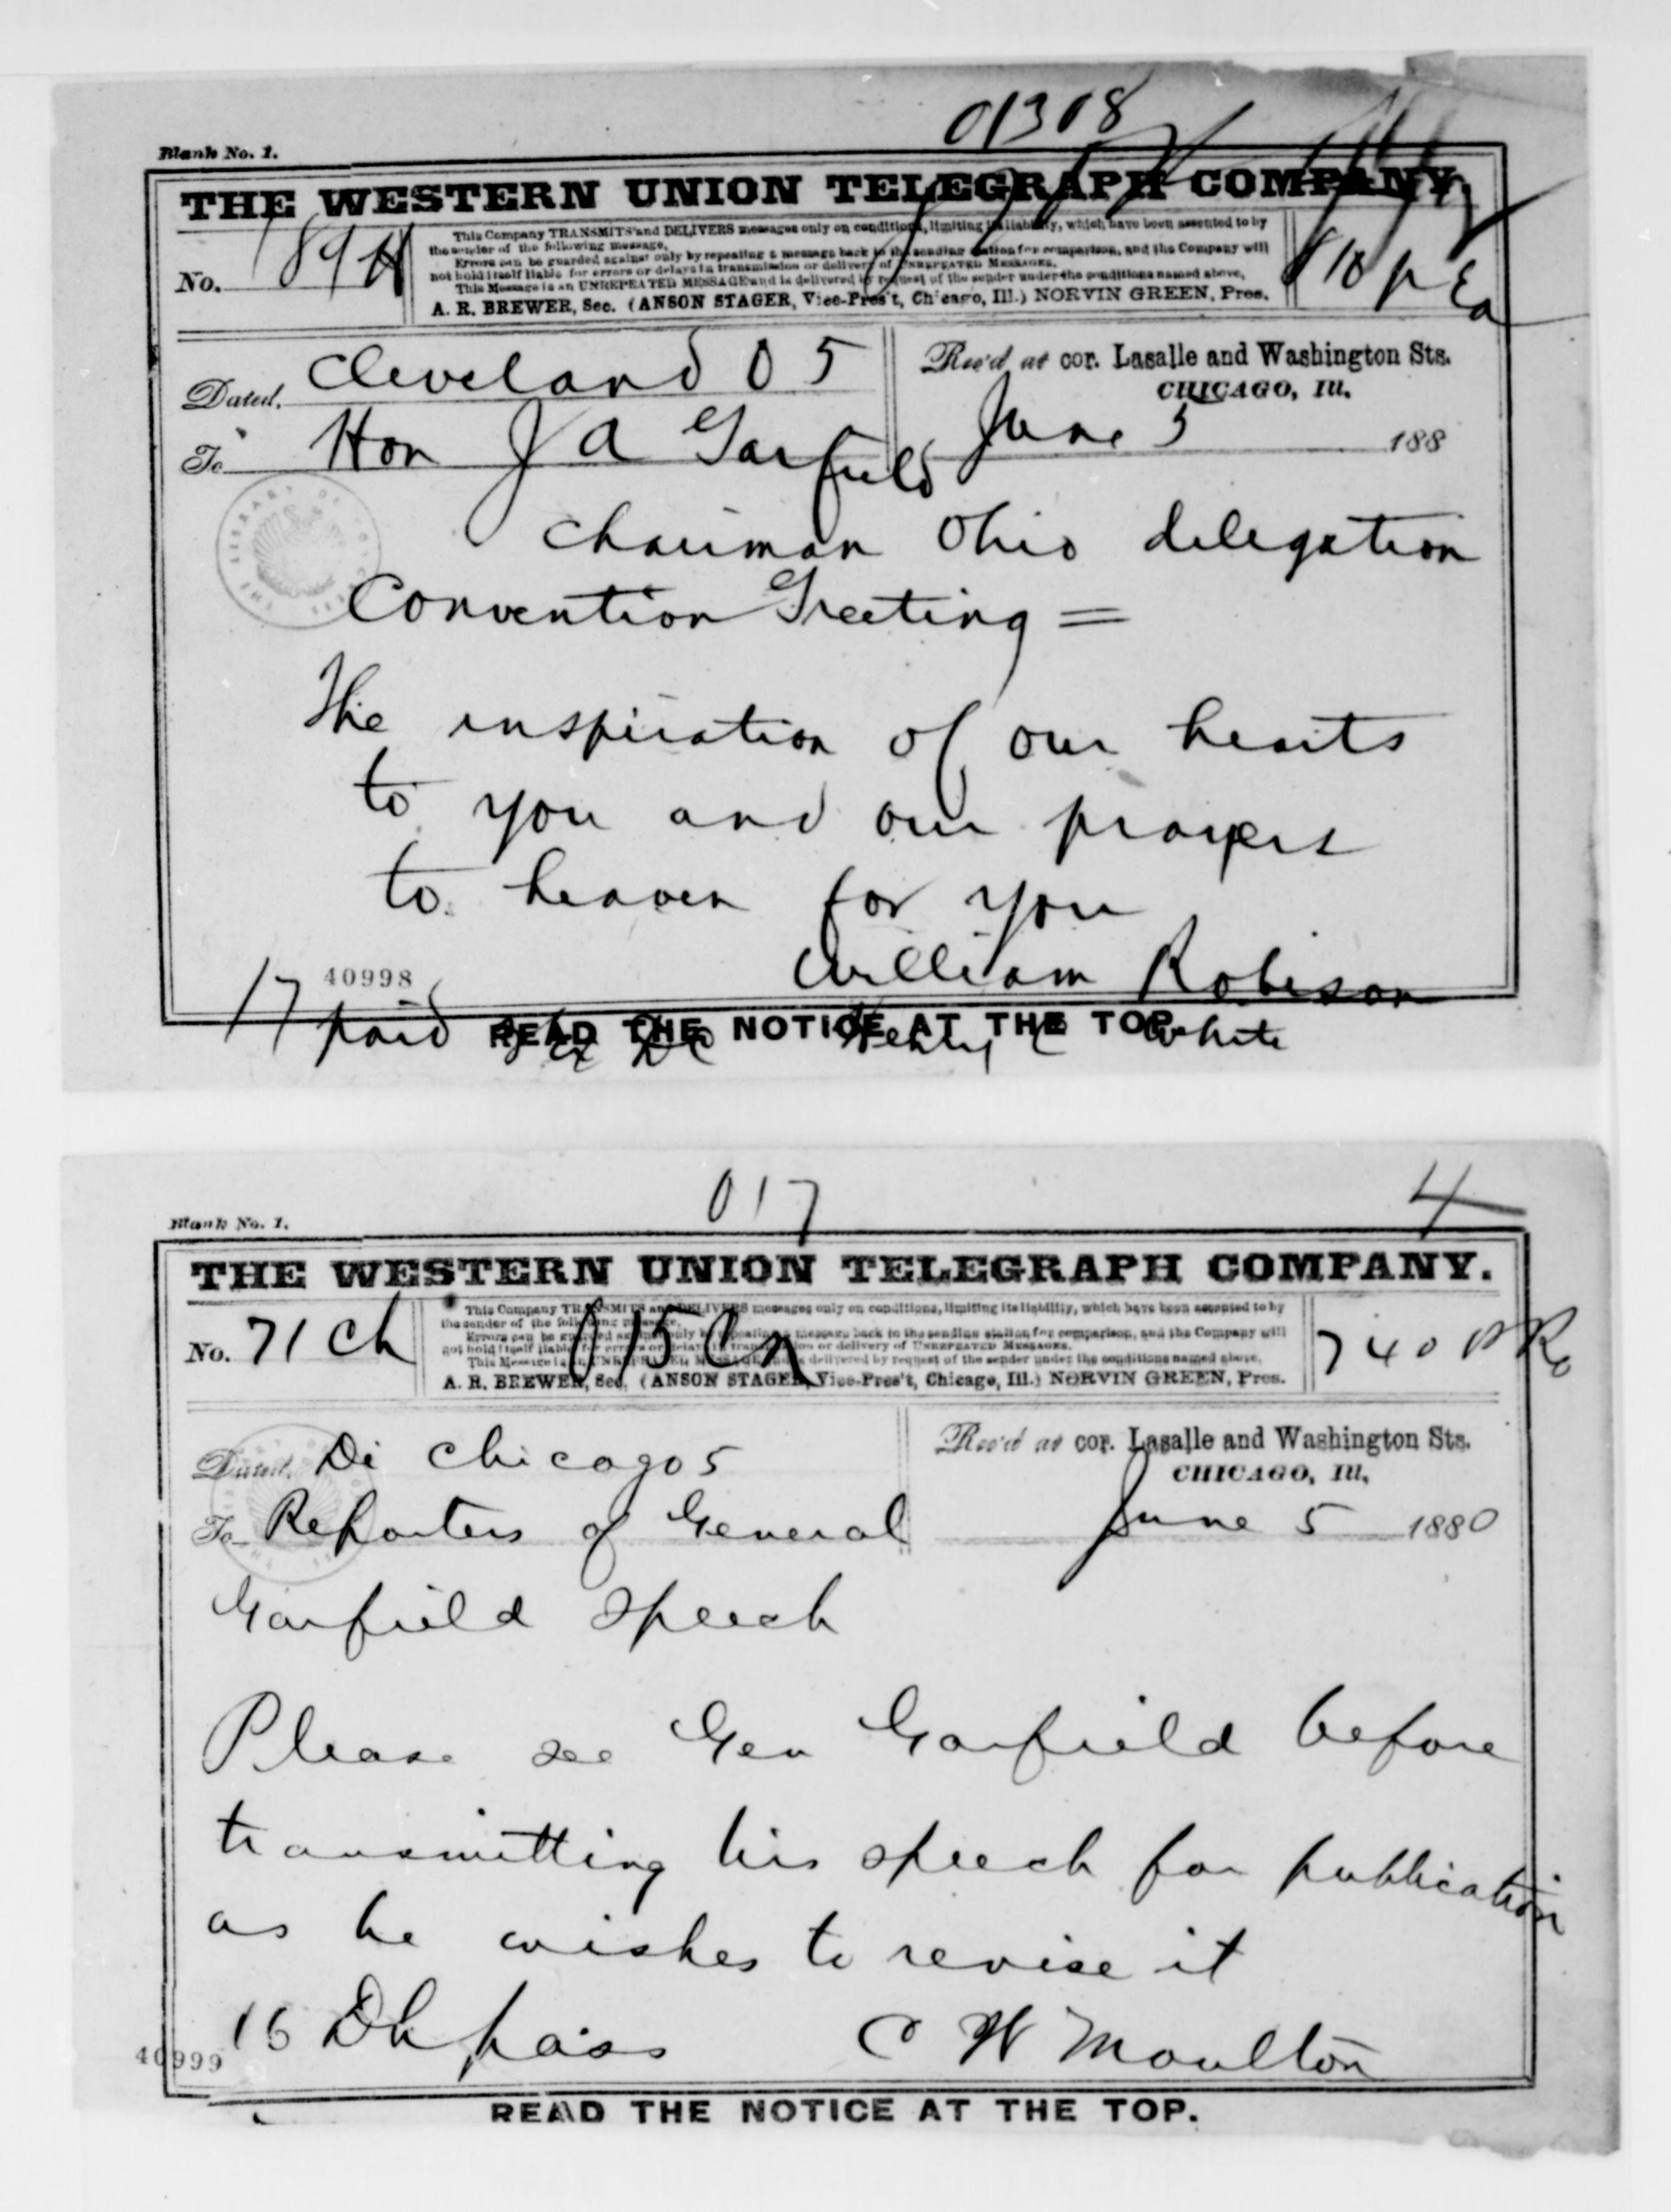 01308
Blank No. 1.
THE WESTERN UNION TELEGRAPH COMPANY.
No. 189 H
This Company TRANSMITS and DELIVERS messages only on conditions, limiting its liability, which have been assented to by
the sender of the following message.
Errors can be guarded against only by repeating a message back to the sending station for comparison, and the Company will
not hold itself liable for errors or delays in transmission or delivery of UNREPEATED MESSAGES.
This Message is an UNREPEATED MESSAGE and is delivered by request of the sender under the conditions named above.
A. R. BREWER, Sec. (ANSON STAGER, Vice-Pres't, Chicago, Ill.) NORVIN GREEN, Pres.
Dated, Cleveland O 5
Rec'd at cor. Lasalle and Washington Sts.
CHICAGO, Ill.
June 5 188
To Hon J A Garfield
Chairman Ohio delegation
Convention Greeting =
The inspiration of our hearts
to you and our prayers
to heaven for you
William Robison
Henry C White
17 paid
40998
READ THE NOTICE AT THE TOP.
017
4
Blank No. 1.
THE WESTERN UNION TELEGRAPH COMPANY.
No. 71 Ch
This Company TRANSMITS and DELIVERS messages only on conditions, limiting its liability, which have been assented to by
the sender of the following message.
Errors can be guarded against only by repeating a message back to the sending station for comparison, and the Company will
not hold itself liable for errors or delays in transmission or delivery of UNREPEATED MESSAGES.
This Message is an UNREPEATED MESSAGE and is delivered by request of the sender under the conditions named above.
A. R. BREWER, Sec. (ANSON STAGER, Vice-Pres't, Chicago, Ill.) NORVIN GREEN, Pres.
740
Dated, Di Chicago 5
Rec'd at cor. Lasalle and Washington Sts.
CHICAGO, Ill.
June 5 1880
To Reporters of General
Garfield Speech
Please see Gen Garfield before
transmitting his speech for publication
as he wishes to revise it
16 Dh pass C W Moulton
40999
READ THE NOTICE AT THE TOP.